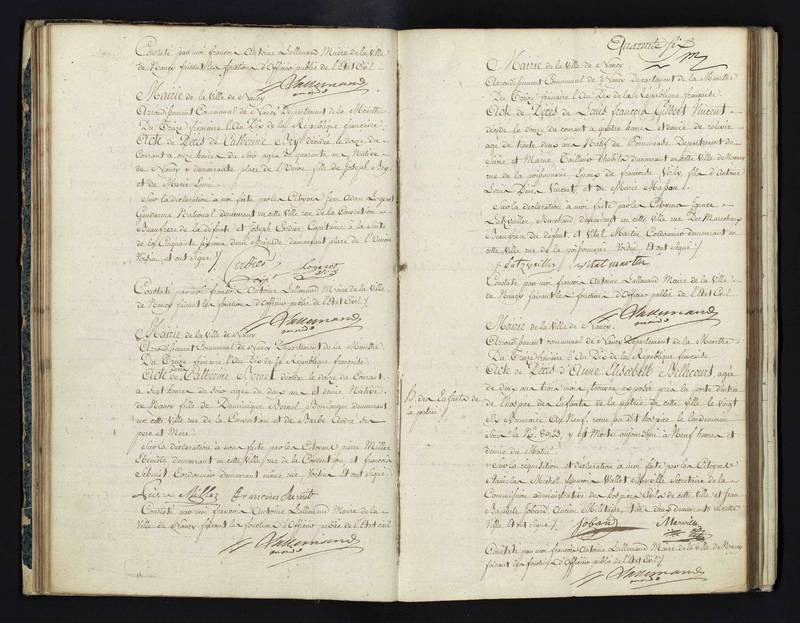 Constaté par moi françois Antoine Lallemand Maire de la Ville
de Nancy faisant les fonctions d'Officier public de l'Etat Civil
Lallemand
Mairie de la Ville de Nancy
Arrondissement Communal de Nancy Departement de la Meurthe
Du Treize frimaire l'An Dix de la République françoise
Acte de Décès de Catherine décédée le douze du
Courant a onze heures du Soir agée de quarante ans Native
de Nancy y demeurante place de l'Union fille de Joseph
et de Marie
Sur la déclaration à moi faite par le Citoyen Jean Adam
Gendarme National demeurant en cette Ville rue de la Convention
Beaufrere de la défunte et Joseph Cordier Capitaine à la suite
de la Cinquante demi Brigade demeurant place de l'Union
Voisin et ont signé
Constaté par moi françois Antoine Lallemand Maire de la Ville
de Nancy faisant les fonctions d'Officier public de l'Etat Civil
Lallemand
Mairie de la Ville de Nancy
Arrondissement Communal de Nancy Departement de la Meurthe
Du Treize frimaire l'An Dix de la République françoise
Acte de Décès de Catherine décédée le douze du Courant
a Sept heures du Soir agée de deux ans et demie Native
de Nancy fille de Dominique Boulanger demeurant
en cette Ville rue de la Convention et de Barbe Ses
pere et Mere
Sur la déclaration à moi faite par les Citoyens Miller
demeurant en cette Ville rue de la Convention et françois
Schmit Cordonnier demeurant même rue Voisins et ont signé
Miller françois Schmit
Constaté par moi françois Antoine Lallemand Maire de la
Ville de Nancy faisant les fonctions d'Officier public de l'Etat civil
Lallemand
Quarante six
Mairie de la Ville de Nancy
Arrondissement Communal de Nancy Departement de la Meurthe
Du Treize frimaire l'An Dix de la République françoise
Acte de Décès de Louis françois Gilbert Vincent
décédé le douze du courant a quatre heures et demie de relevée
agé de trente deux ans Natif de Departement de
Seine et Marne, Tailleur d'habits demeurant en cette Ville de Nancy
rue de la poissonnerie, Epoux de françoise fils d'Antoine
Louis Vincent et de Marie
Sur la déclaration à moi faite par les Citoyens
Marchand demeurant en cette Ville rue
Beaufrere du défunt et Vital Martin Cordonnier demeurant en
cette Ville rue de la poissonnerie Voisin, et ont Signé
Vital martin
Constaté par moi françois Antoine Lallemand Maire de la Ville
de Nancy faisant les fonctions d'Officier public de l'Etat Civil
Lallemand
Mairie de la Ville de Nancy
Arrondissement communal de Nancy Departement de la Meurthe
Du Treize frimaire l'An Dix de la République françoise
Acte de Décès d'Anne Elisabeth Bellecourt agée
de deux ans trois mois, trouvée exposée près la porte d'entrée
de l'hospice des Enfants de la patrie de cette Ville le vingt
Brumaire An Neuf, au dit hospice le lendemain
Sous le Nº y est Morte aujourdhui à Neuf heures et
demie du Matin
Sur la requisition et déclaration a moi faite par les Citoyens
Michel françois Vallet Merville Secretaire de la
Commission administrative des hospices Civils de cette Ville et Jean
Baptiste Jobard Ancien Militaire, tous deux demeurants en cette
Ville et ont Signé
Jobard Merville
Constaté par moi françois Antoine Lallemand Maire de la Ville de Nancy
faisant les fonctions d'Officier public de l'Etat Civil
Lallemand
H. des Enfants de
la patrie